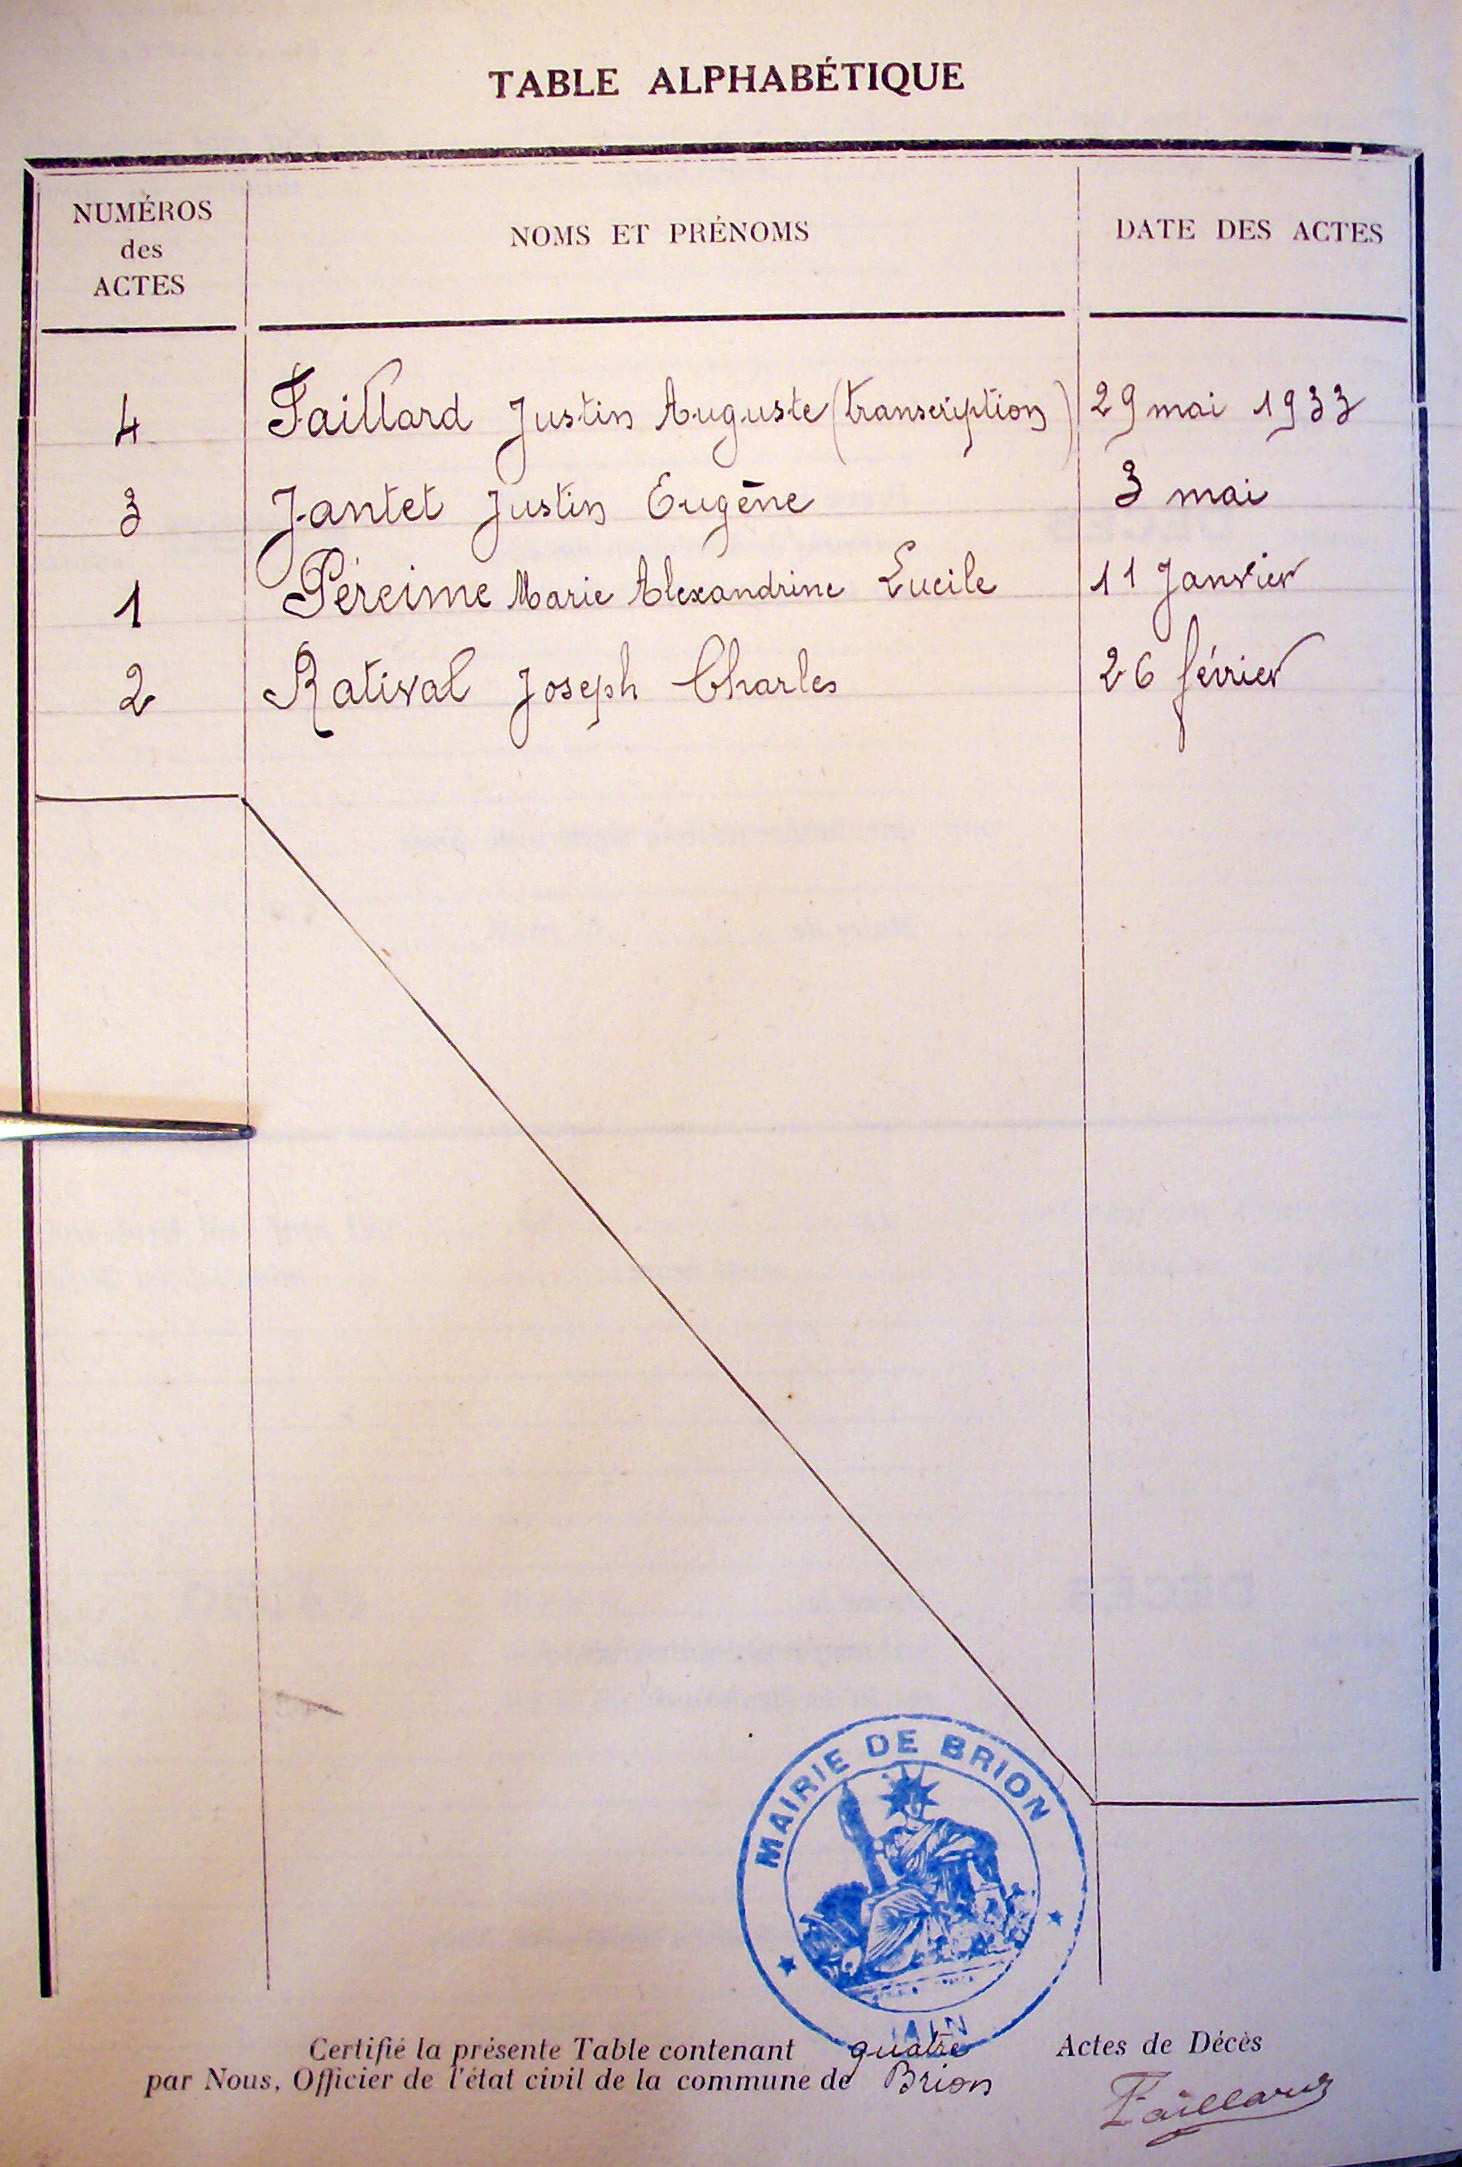 TABLE ALPHABÉTIQUE
NUMÉROS
des
ACTES
NOMS ET PRÉNOMS
DATE DES ACTES
4 Faillard Justin Auguste (transcription) 29 mai 1933
3 Jantet Justin Eugène 3 mai
1 Péreime Marie Alexandrine Lucile 11 Janvier
2 Ratival Joseph Charles 26 février
MAIRIE DE BRION
AIN
Certifié la présente Table contenant quatre Actes de Décès
par Nous, Officier de l'état civil de la commune de Brion
Faillard